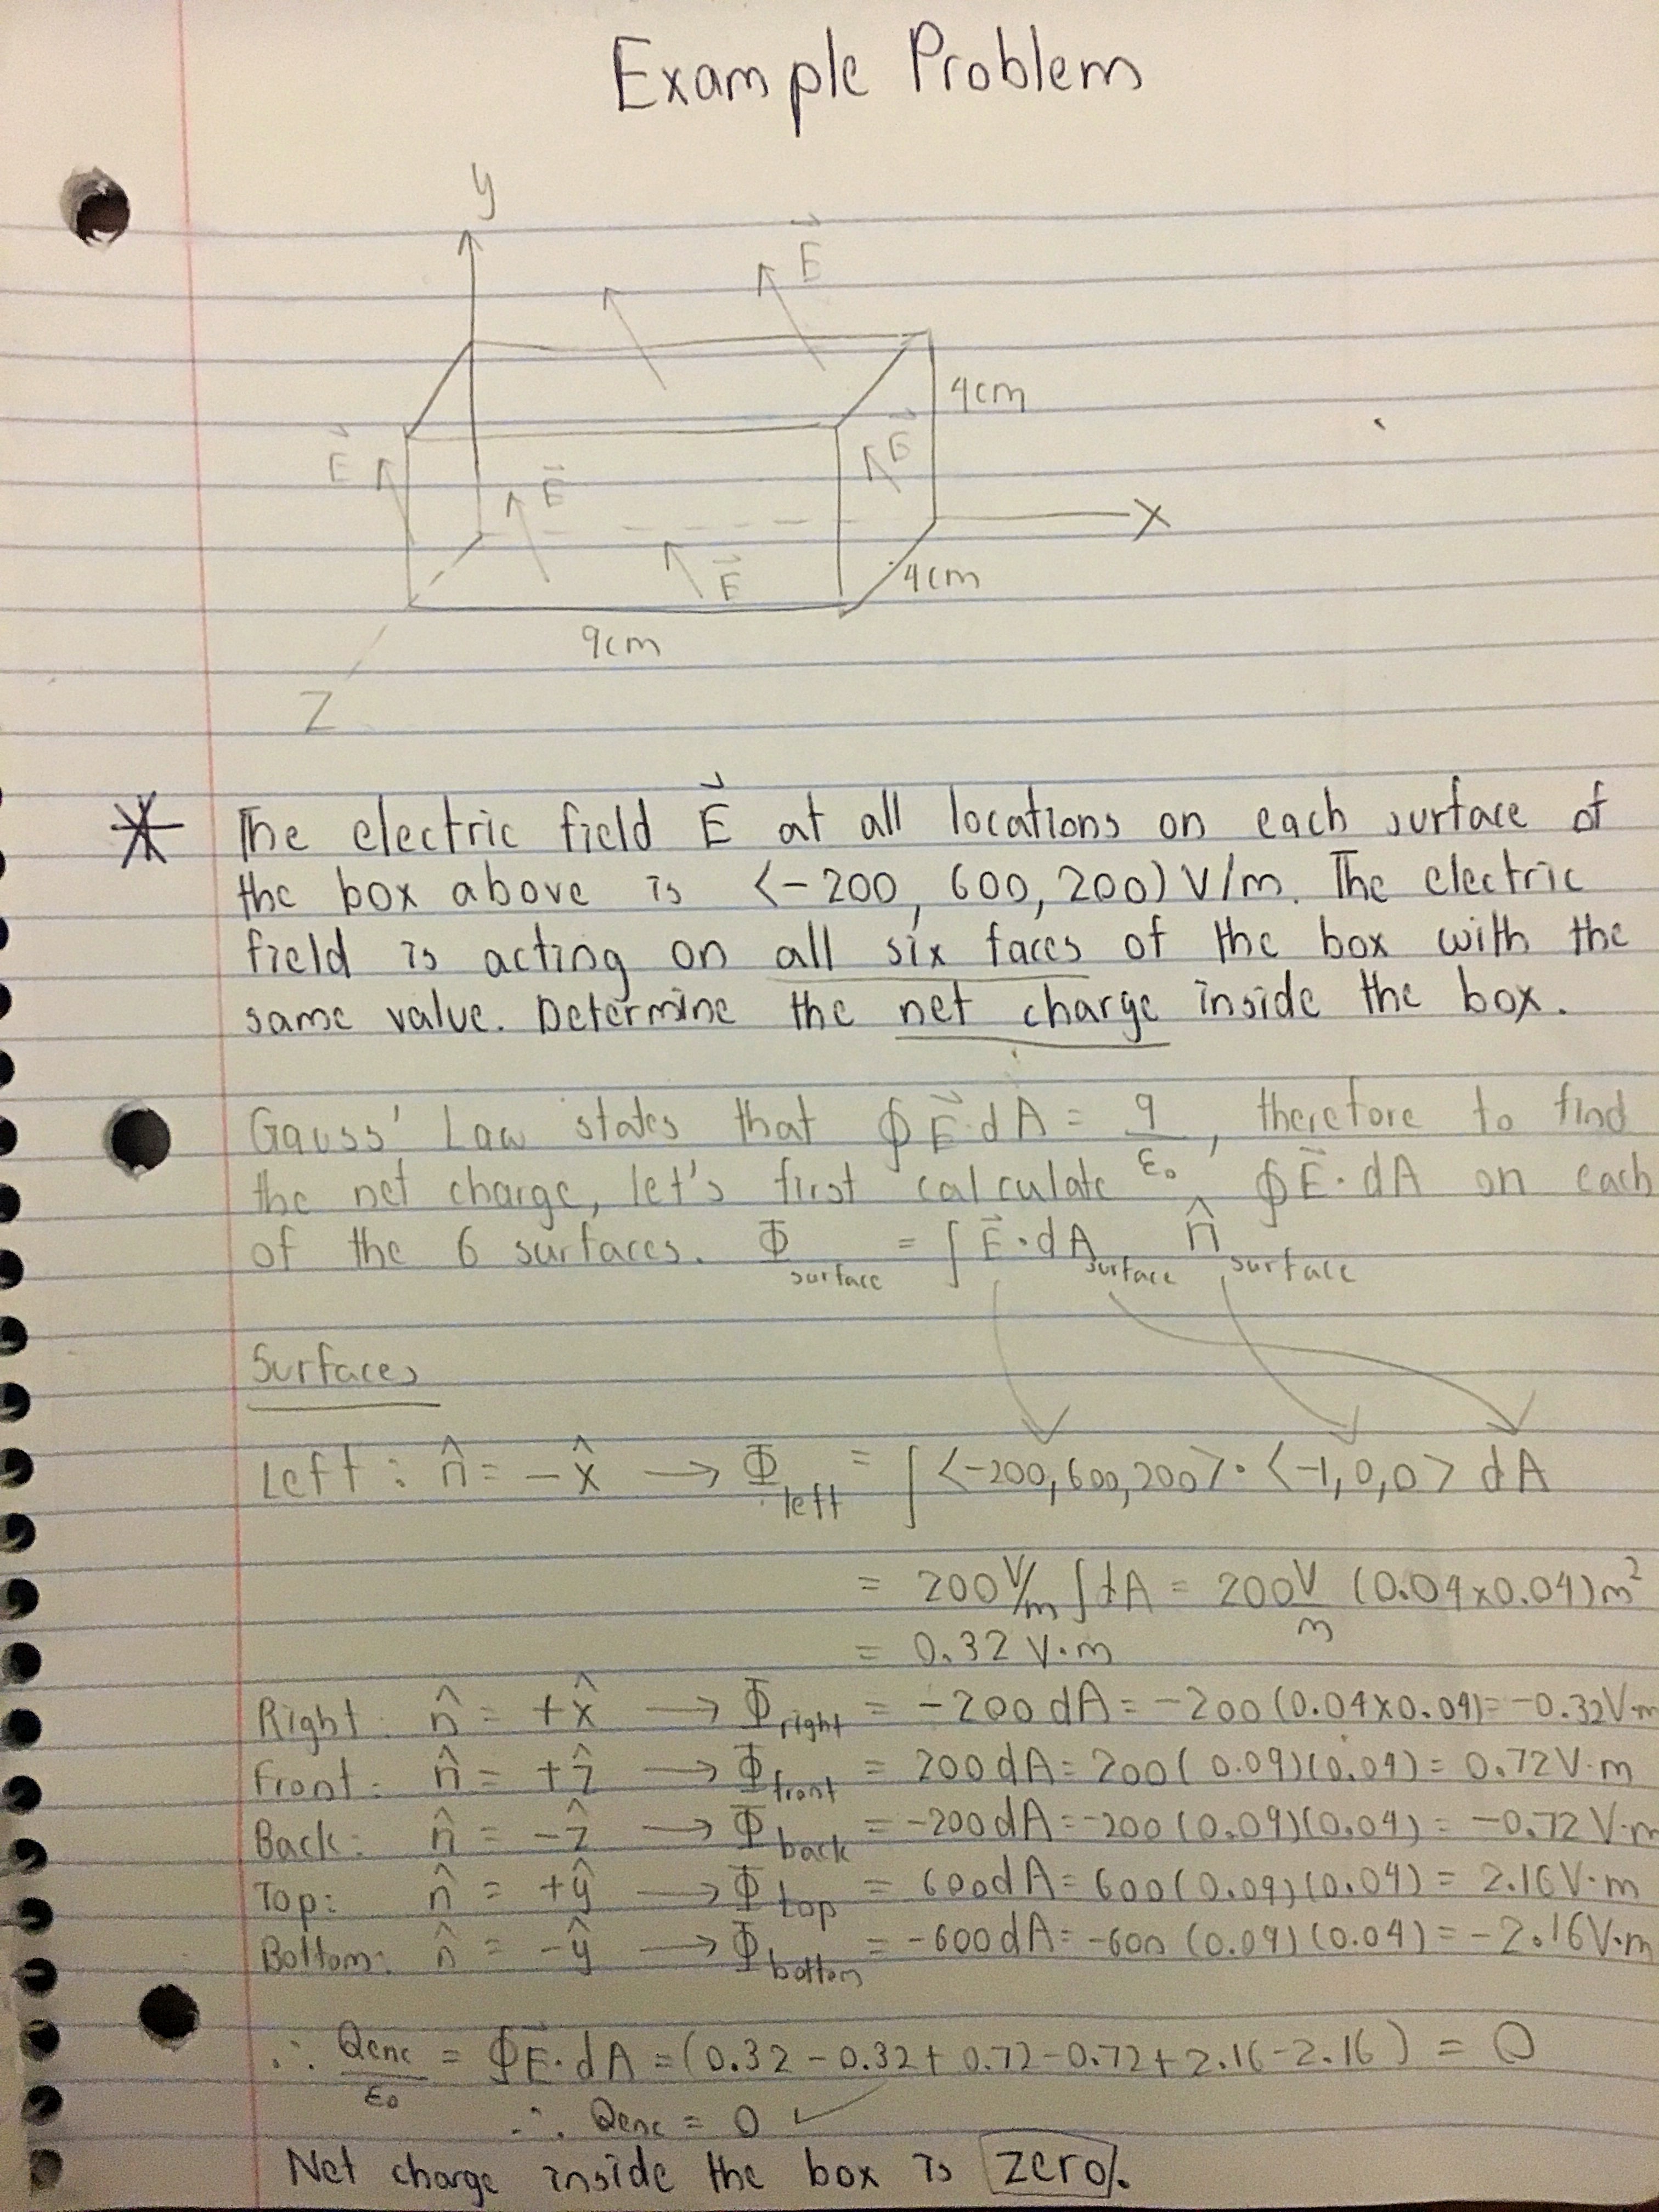 Example Problem
y
E⃗
4cm
E⃗
E⃗
E⃗
X
E⃗
4cm
9cm
Z
* The electric field E⃗ at all locations on each surface of
the box above is <-200, 600, 200) V/m. The electric
field is acting on all six faces of the box with the
same value. Determine the net charge inside the box.
Gauss' Law states that ∮E⃗·dA = q/ε₀, therefore to find
the net charge, let's first calculate ∮E⃗·dA on each
of the 6 surfaces. Φ surface = ∫E⃗·dA surface n̂ surface
Surfaces
Left: n̂ = -x̂ → Φ left = ∫<-200,600,200>·<-1,0,0> dA
= 200 V/m ∫dA = 200 V/m (0.04x0.04)m²
= 0.32 V·m
Right: n̂ = +x̂ → Φ right = -200 dA = -200(0.04x0.04) = -0.32V·m
Front: n̂ = +ẑ → Φ front = 200dA = 200(0.09)(0.04) = 0.72V·m
Back: n̂ = -ẑ → Φ back = -200dA = -200(0.09)(0.04) = -0.72 V·m
Top: n̂ = +ŷ → Φ top = 600dA = 600(0.09)(0.04) = 2.16V·m
Bottom: n̂ = -ŷ → Φ bottom = -600dA = -600 (0.09)(0.04) = -2.16V·m
∴ Qenc/ε₀ = ∮E⃗·dA = (0.32-0.32+0.72-0.72+2.16-2.16) = 0
∴ Qenc = 0 ✓
Net charge inside the box is zero.